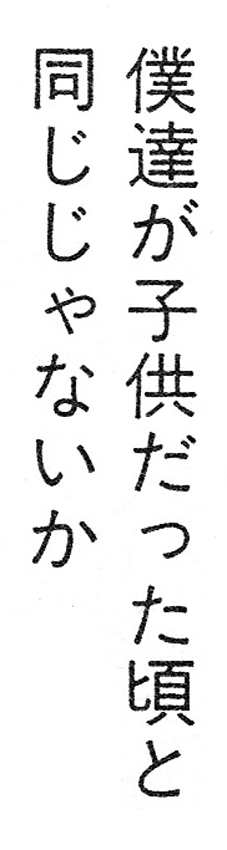 僕達が子供だった頃と
同じじゃないか